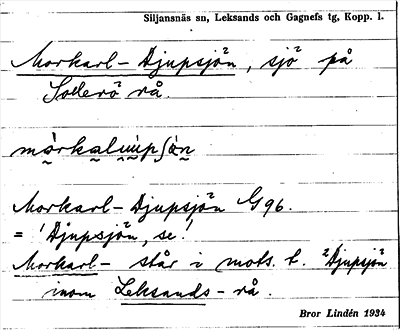 Siljansnäs sn, Leksands och Gagnefs tg, Kopp. l.
Morkarl-Djupsjön, sjö på
Sollerö rå.
Morkarl-Djupsjön G 96.
= 'Djupsjön, se!
Morkarl- står i mots. t. Djupsjön
inom Leksands-rå.
Bror Lindén 1934